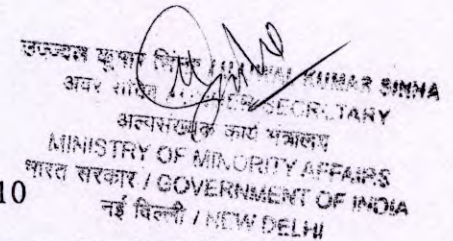 उज्ज्वल कुमार सिन्हा / UJJWAL KUMAR SINHA
अवर सचिव / UNDER SECRETARY
अल्पसंख्यक कार्य मंत्रालय
MINISTRY OF MINORITY AFFAIRS
भारत सरकार / GOVERNMENT OF INDIA
नई दिल्ली / NEW DELHI
10